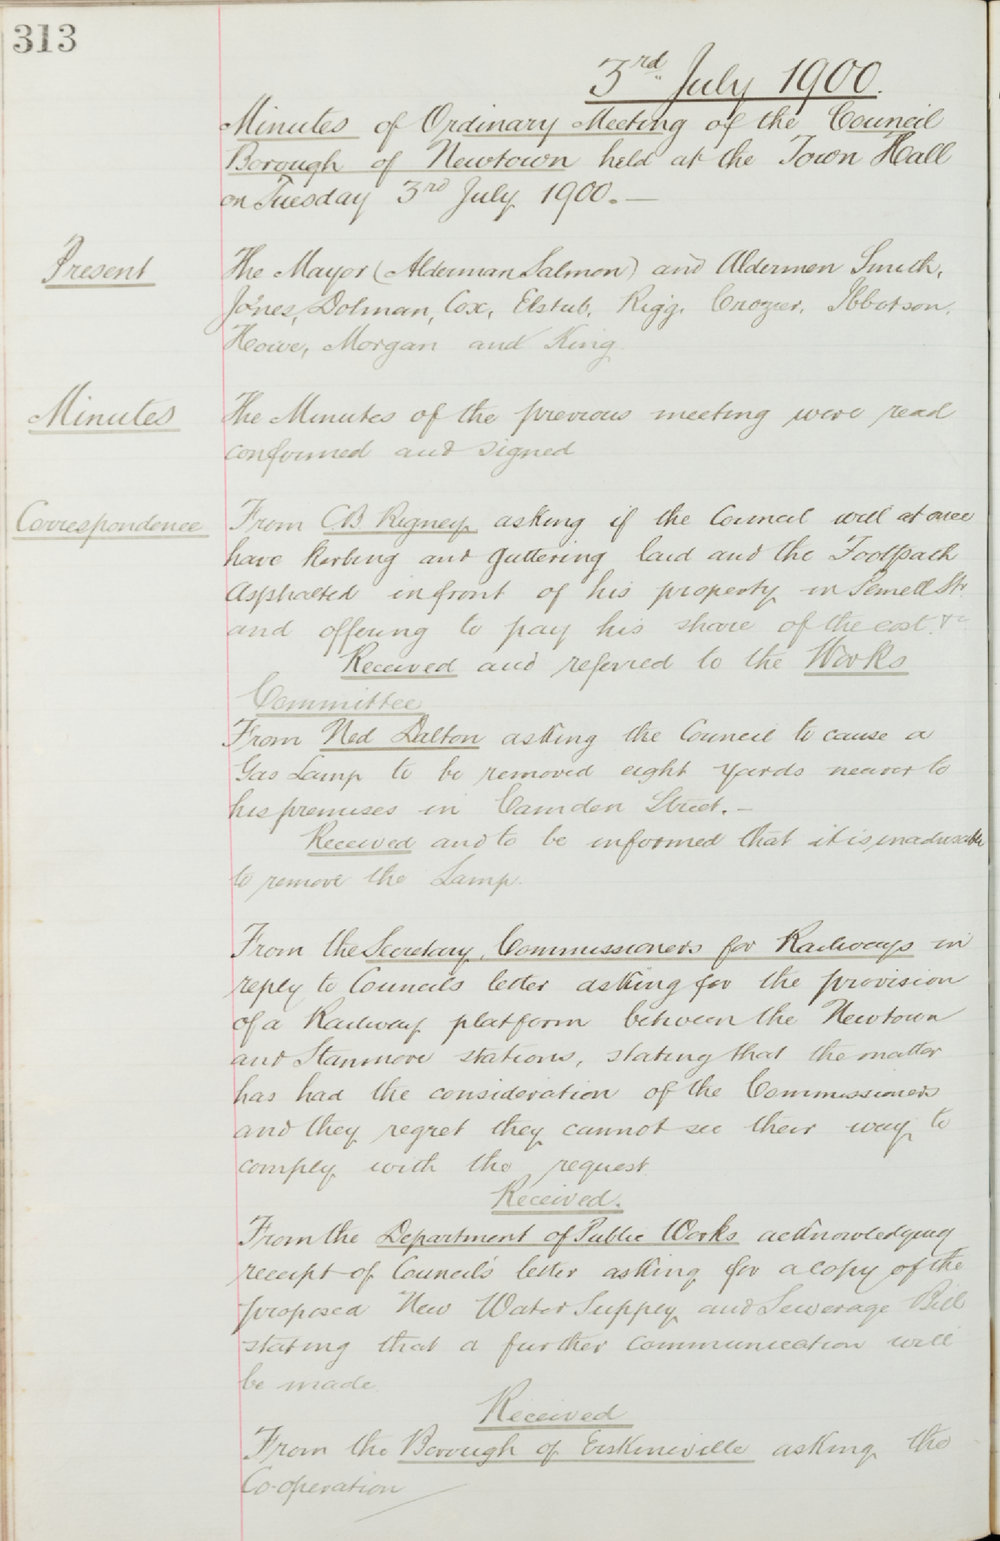 313
3rd July 1900.
Minutes of Ordinary Meeting of the Council
Borough of Newtown held at the Town Hall
on Tuesday 3rd July 1900. —
Present
The Mayor (Alderman Salmon) and Aldermen Smith,
Jones, Dolman, Cox, Elstub, Rigg, Crozier, Ibbotson,
Howe, Morgan and King
Minutes
The Minutes of the previous meeting were read
confirmed and signed
Correspondence
From C.B. Rigney asking if the Council will at once
have kerbing and guttering laid and the Footpath
Asphalted in front of his property in Str
and offering to pay his share of the cost &c
Received and referred to the Works
Committee
From Ned Dalton asking the Council to cause a
Gas Lamp to be removed eight yards nearer to
his premises in Camden Street. —
Received and to be informed that it is inadvisable
to remove the Lamp.
From the Secretary, Commissioners for Railways in
reply to Councils letter asking for the provision
of a Railway platform between the Newtown
and Stanmore stations, stating that the matter
has had the consideration of the Commissioners
and they regret they cannot see their way to
comply with the request
Received.
From the Department of Public Works acknowledging
receipt of Council's letter asking for a copy of the
proposed New Water Supply and Sewerage Bill
stating that a further communication will
be made
Received
From the Borough of Erskineville asking the
Co-operation